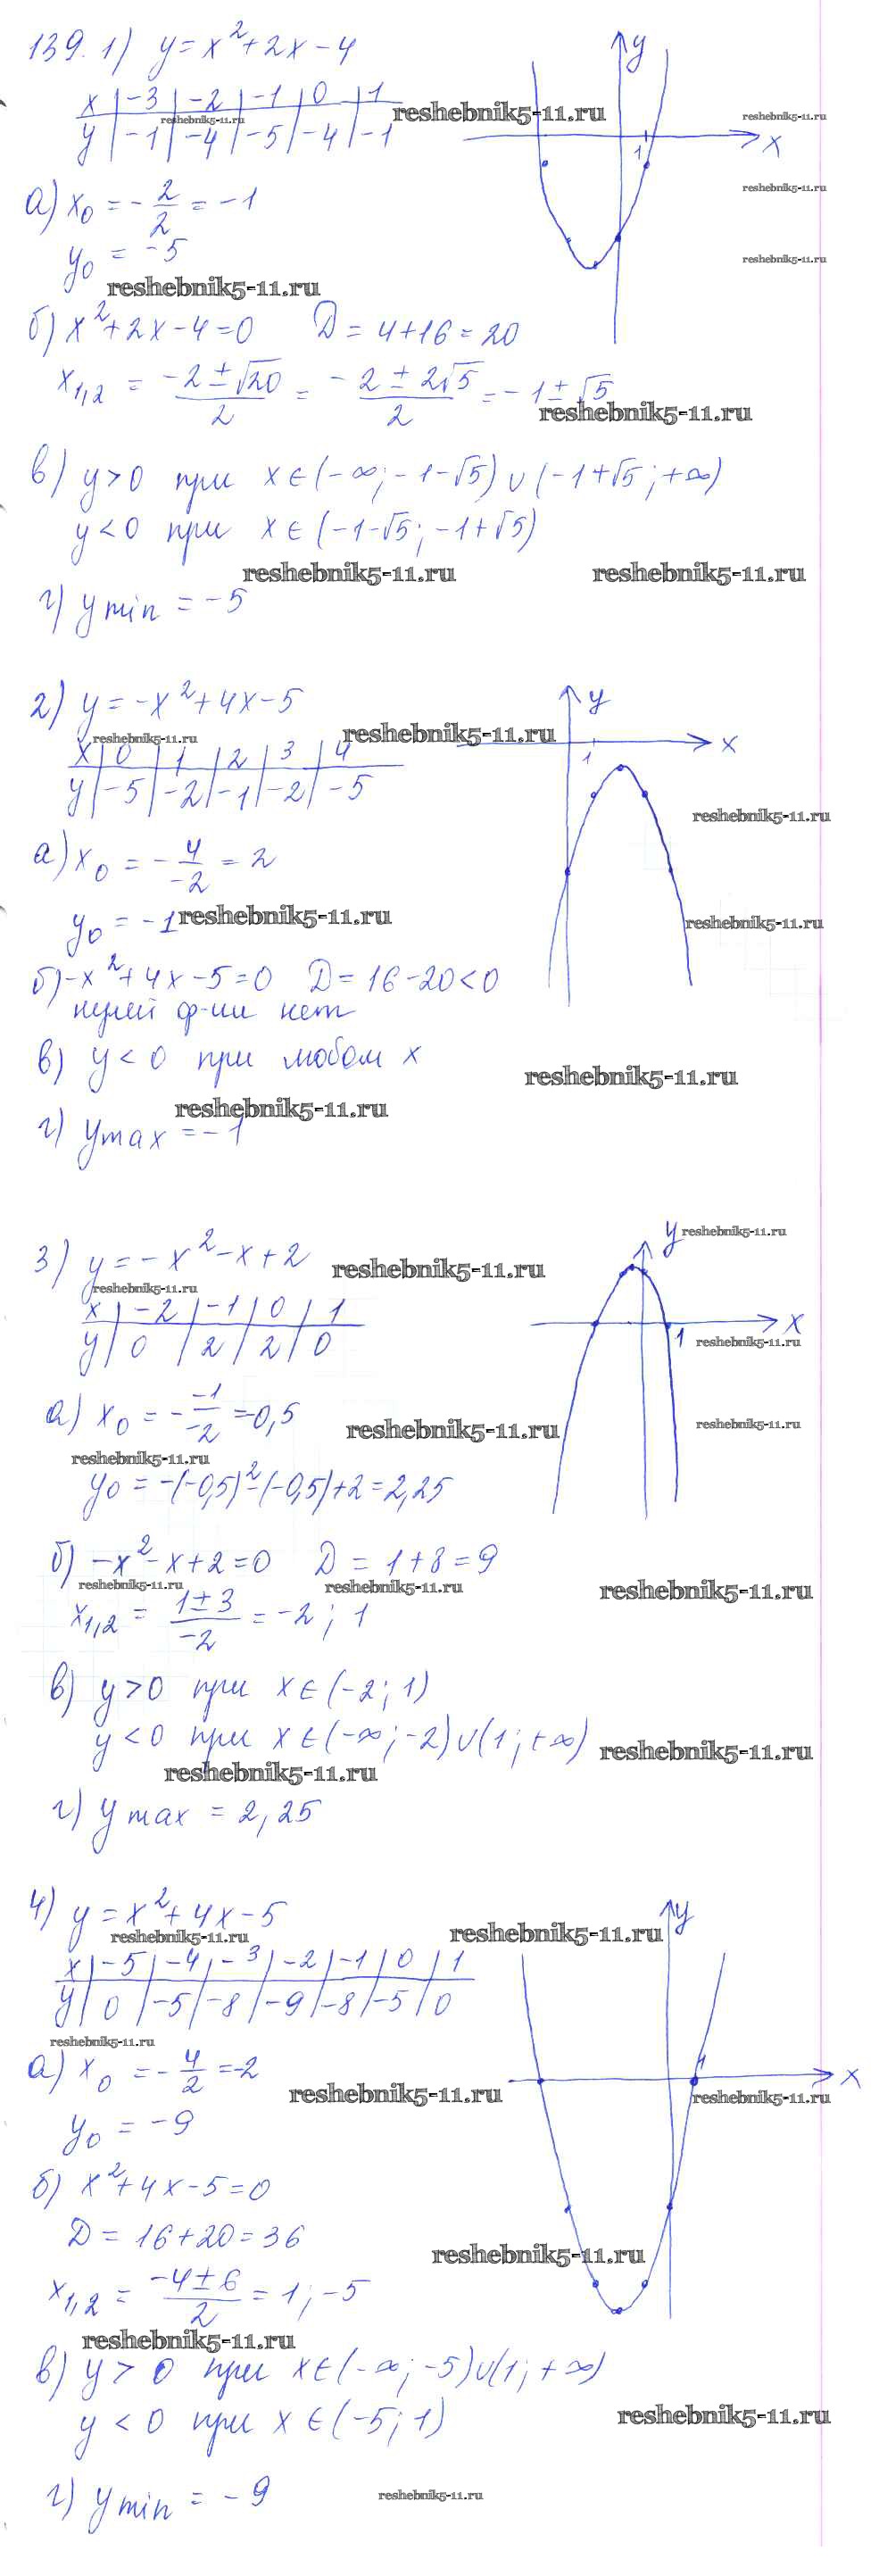 139. 1) y = x² + 2x - 4
y
x | -3 | -2 | -1 | 0 | 1
reshebnik5-11.ru
reshebnik5-11.ru
reshebnik5-11.ru
y | -1 | -4 | -5 | -4 | -1
1
x
reshebnik5-11.ru
а) x₀ = - 2/2 = -1
y₀ = -5
reshebnik5-11.ru
reshebnik5-11.ru
б) x² + 2x - 4 = 0 D = 4 + 16 = 20
x₁,₂ = (-2 ± √20)/2 = - (2 ± 2√5)/2 = -1 ± √5
reshebnik5-11.ru
в) y > 0 при x ∈ (-∞; -1-√5) ∪ (-1+√5; +∞)
y < 0 при x ∈ (-1-√5; -1+√5)
reshebnik5-11.ru
reshebnik5-11.ru
г) y min = -5
2) y = -x² + 4x - 5
y
reshebnik5-11.ru
reshebnik5-11.ru
x | 0 | 1 | 2 | 3 | 4
1
x
y | -5 | -2 | -1 | -2 | -5
reshebnik5-11.ru
а) x₀ = - 4/-2 = 2
y₀ = -1
reshebnik5-11.ru
reshebnik5-11.ru
б) -x² + 4x - 5 = 0 D = 16 - 20 < 0
нулей ф-ии нет
в) y < 0 при любом x
reshebnik5-11.ru
reshebnik5-11.ru
г) y max = -1
y
reshebnik5-11.ru
3) y = -x² - x + 2
reshebnik5-11.ru
reshebnik5-11.ru
x | -2 | -1 | 0 | 1
x
y | 0 | 2 | 2 | 0
1
reshebnik5-11.ru
а) x₀ = - -1/-2 = -0,5
reshebnik5-11.ru
reshebnik5-11.ru
reshebnik5-11.ru
y₀ = -(-0,5)² - (-0,5) + 2 = 2,25
б) -x² - x + 2 = 0 D = 1 + 8 = 9
reshebnik5-11.ru
reshebnik5-11.ru
reshebnik5-11.ru
x₁,₂ = (1 ± 3)/-2 = -2; 1
в) y > 0 при x ∈ (-2; 1)
y < 0 при x ∈ (-∞; -2) ∪ (1; +∞)
reshebnik5-11.ru
reshebnik5-11.ru
г) y max = 2,25
4) y = x² + 4x - 5
y
reshebnik5-11.ru
reshebnik5-11.ru
x | -5 | -4 | -3 | -2 | -1 | 0 | 1
y | 0 | -5 | -8 | -9 | -8 | -5 | 0
reshebnik5-11.ru
а) x₀ = - 4/2 = -2
1
x
reshebnik5-11.ru
reshebnik5-11.ru
y₀ = -9
б) x² + 4x - 5 = 0
D = 16 + 20 = 36
reshebnik5-11.ru
x₁,₂ = (-4 ± 6)/2 = 1; -5
reshebnik5-11.ru
в) y > 0 при x ∈ (-∞; -5) ∪ (1; +∞)
y < 0 при x ∈ (-5; 1)
reshebnik5-11.ru
г) y min = -9
reshebnik5-11.ru